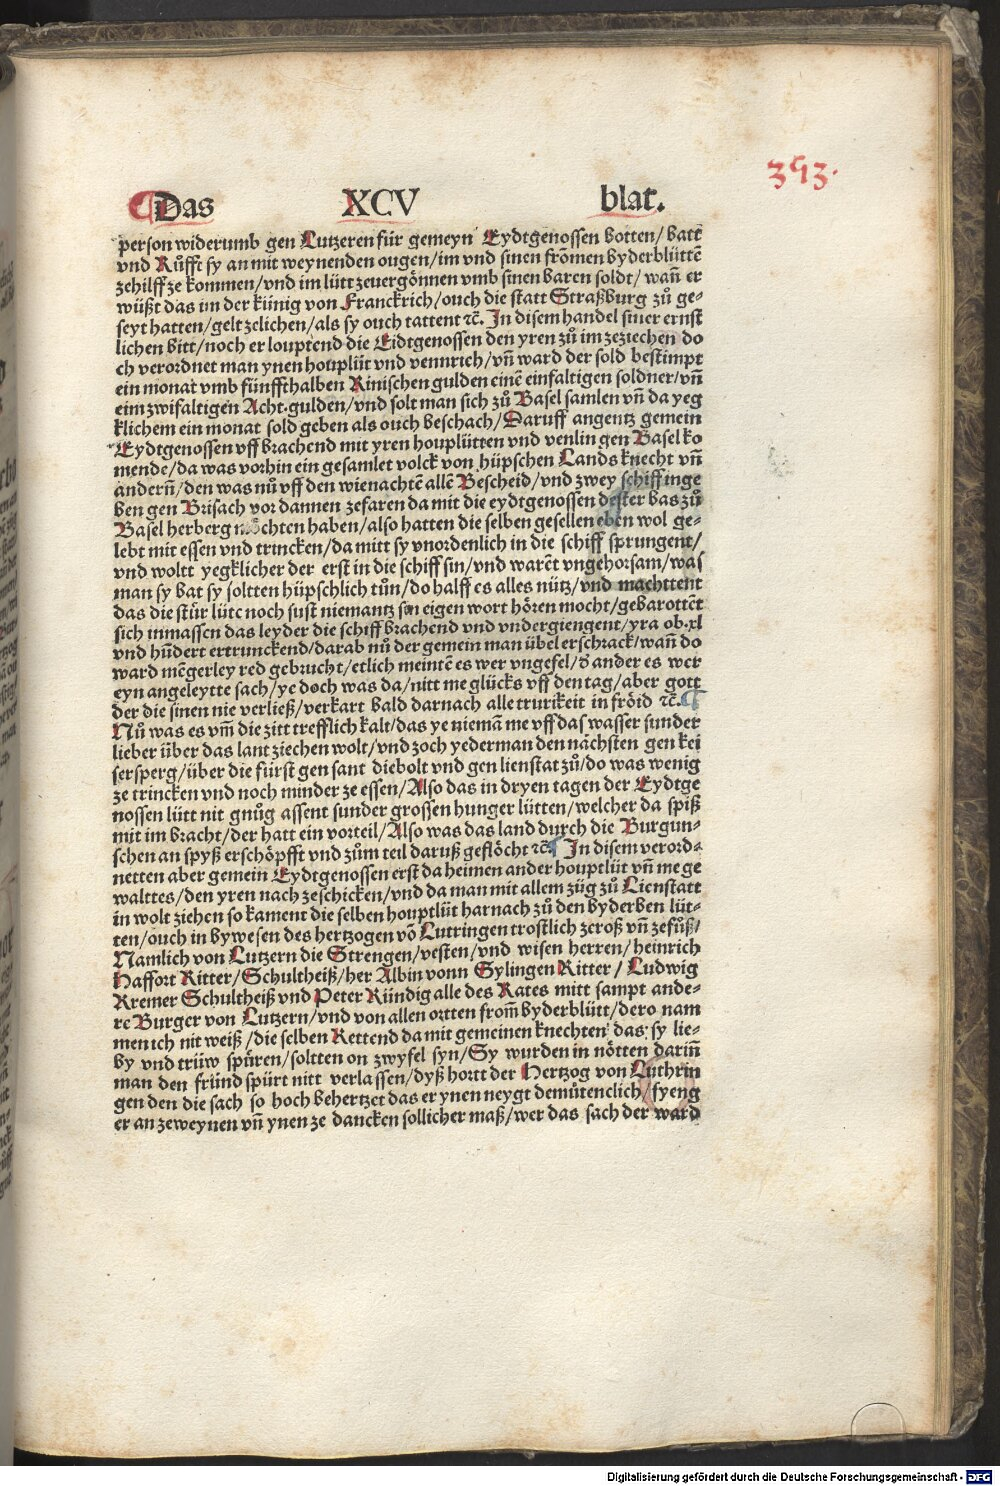 393.
Das XCV blat.
person widerumb gen Lutzeren für gemeyn Eydtgenossen botten/batt
vnd Růfft sy an mit weynenden ougen/im vnd sinen frõmen byderblüttẽ
zehilff ze kommen/vnd im lütt zeuergönnen vmb sinen baren soldt/wañ er
wüßt das im der künig von Franckrich/ouch die statt Straßburg zů ge-
seyt hatten/gelt zelichen/als sy ouch tattent ꝛc̃. In disem handel siner ernst
lichen bitt/noch er louptend die Eidtgenossen den yren zů im zeziechen do
ch verordnet man ynen houplüt vnd vennrich/vñ ward der sold bestimpt
ein monat vmb fünffthalben Rinischen gulden einẽ einfaltigen soldner/vñ
eim zwifaltigen Acht.gulden/vnd solt man sich zů Basel samlen vñ da yeg
klichem ein monat sold geben als ouch beschach/Daruff angentz gemein
Eydtgenossen vff brachend mit yren houplütten vnd venlin gen Basel ko
mende/da was vorhin ein gesamlet volck von hüpschen Lands knecht vñ
anderñ/den was nů vff den wienachtẽ allẽ Bescheid/vnd zwey schiff inge
ben gen Brisach vor dannen zefaren da mit die eydtgenossen dester bas zů
Basel herberg möchten haben/also hatten die selben gesellen eben wol ge-
lebt mit essen vnd trincken/da mitt sy vnordenlich in die schiff sprungent/
vnd woltt yegklicher der erst in die schiff sin/vnd warẽt vngehorsam/was
man sy bat sy soltten hüpschlich tůn/do halff es alles nütz/vnd machttent
das die stür lüte noch sust niemantz sin eigen wort hören mocht/gebarottẽt
sich inmassen das leyder die schiff brachend vnd vndergiengent/yra ob.xl
vnd hũdert ertrunckend/darab nů der gemein man übel erschrack/wañ do
ward mẽgerley red gebrucht/etlich meintẽ es wer vngefel/d̃ ander es wer
eyn angeleytte sach/ye doch was da/nitt me glücks vff den tag/aber gott
der die sinen nie verließ/verkart bald darnach alle trurikeit in fröid ꝛc̃. ¶
Nů was es vm̃ die zitt trefflich kalt/das ye niemãn me vff das wasser sunder
lieber über das lant ziechen wolt/vnd zoch yederman den nächsten gen kei
sersperg/über die fürst gen sant diebolt vnd gen lienstat zů/do was wenig
ze trincken vnd noch minder ze essen/Also das in dryen tagen der Eydtge
nossen lütt nit gnůg assent sunder grossen hunger lütten/welcher da spiß
mit im bracht/der hatt ein vorteil/Also was das land durch die Burgun-
schen an spyß erschöpfft vnd zům teil daruß geflöcht ꝛc̃ ¶ In disem verord-
netten aber gemein Eydtgenossen erst da heimen ander houptlüt vñ me ge
walttes/den yren nach zeschicken/vnd da man mit allem züg zů Lienstatt
in wolt ziehen so kament die selben houptlüt harnach zů den byderben lüt-
ten/ouch in bywesen des hertzogen võ Lutringen trostlich zeroß vñ zefůß/
Namlich von Lutzern die Strengen/vesten/vnd wisen herren/heinrich
Haffort Ritter/Schultheiß/her Albin vonn Sylingen Ritter/ Ludwig
Kremer Schultheiß vnd Peter Ründig alle des Rates mitt sampt ande-
re Burger von Lutzern/vnd von allen ortten from̃ byderblütt/dero nam
men ich nit weiß/die selben Rettend da mit gemeinen knechten das sy lie-
by vnd trüw spüren/soltten on zwyfel syn/Sy wurden in nötten darin̄
man den fründ spürt nitt verlassen/dyß hortt der Hertzog von Luthrin
gen den die sach so hoch behertzet das er ynen neygt demütenclich/fyeng
er an zeweynen vñ ynen ze dancken sollicher maß/wer das sach der ward
Digitalisierung gefördert durch die Deutsche Forschungsgemeinschaft - DFG